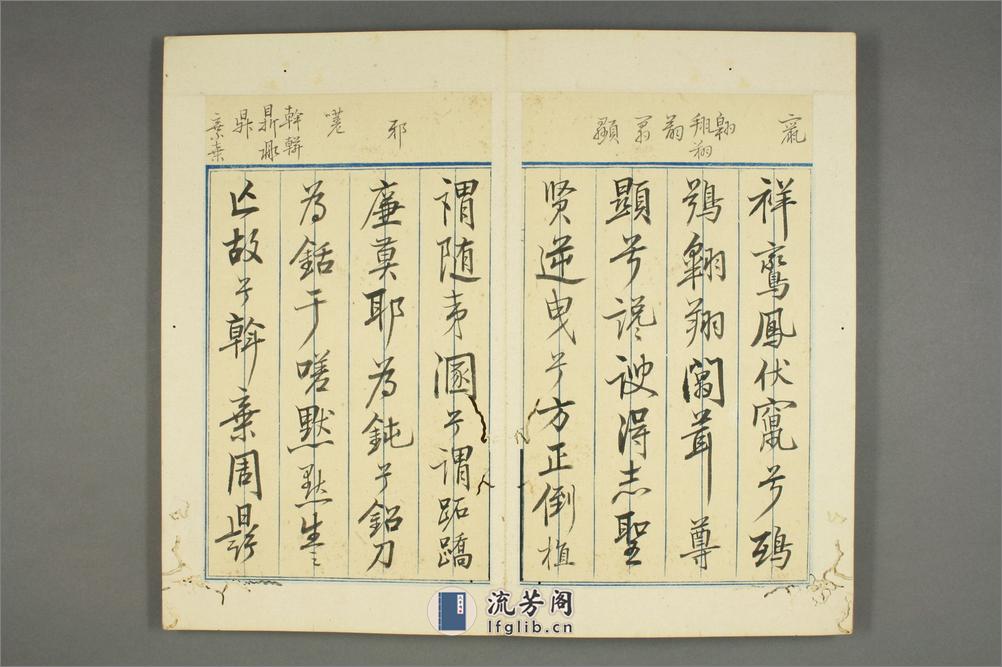 竄
翱
翔
顯
祥鸞鳳伏竄兮鴟
鴞翱翔闒茸尊
顯兮讒諛得志聖
賢逆曳兮方正倒植
邪
嗟
鼎
謂随夷溷兮謂跖蹻
廉莫耶為鈍兮鉛刀
為銛于嗟默默生之
亡故兮斡棄周鼎
流芳阁
lfglib.cn